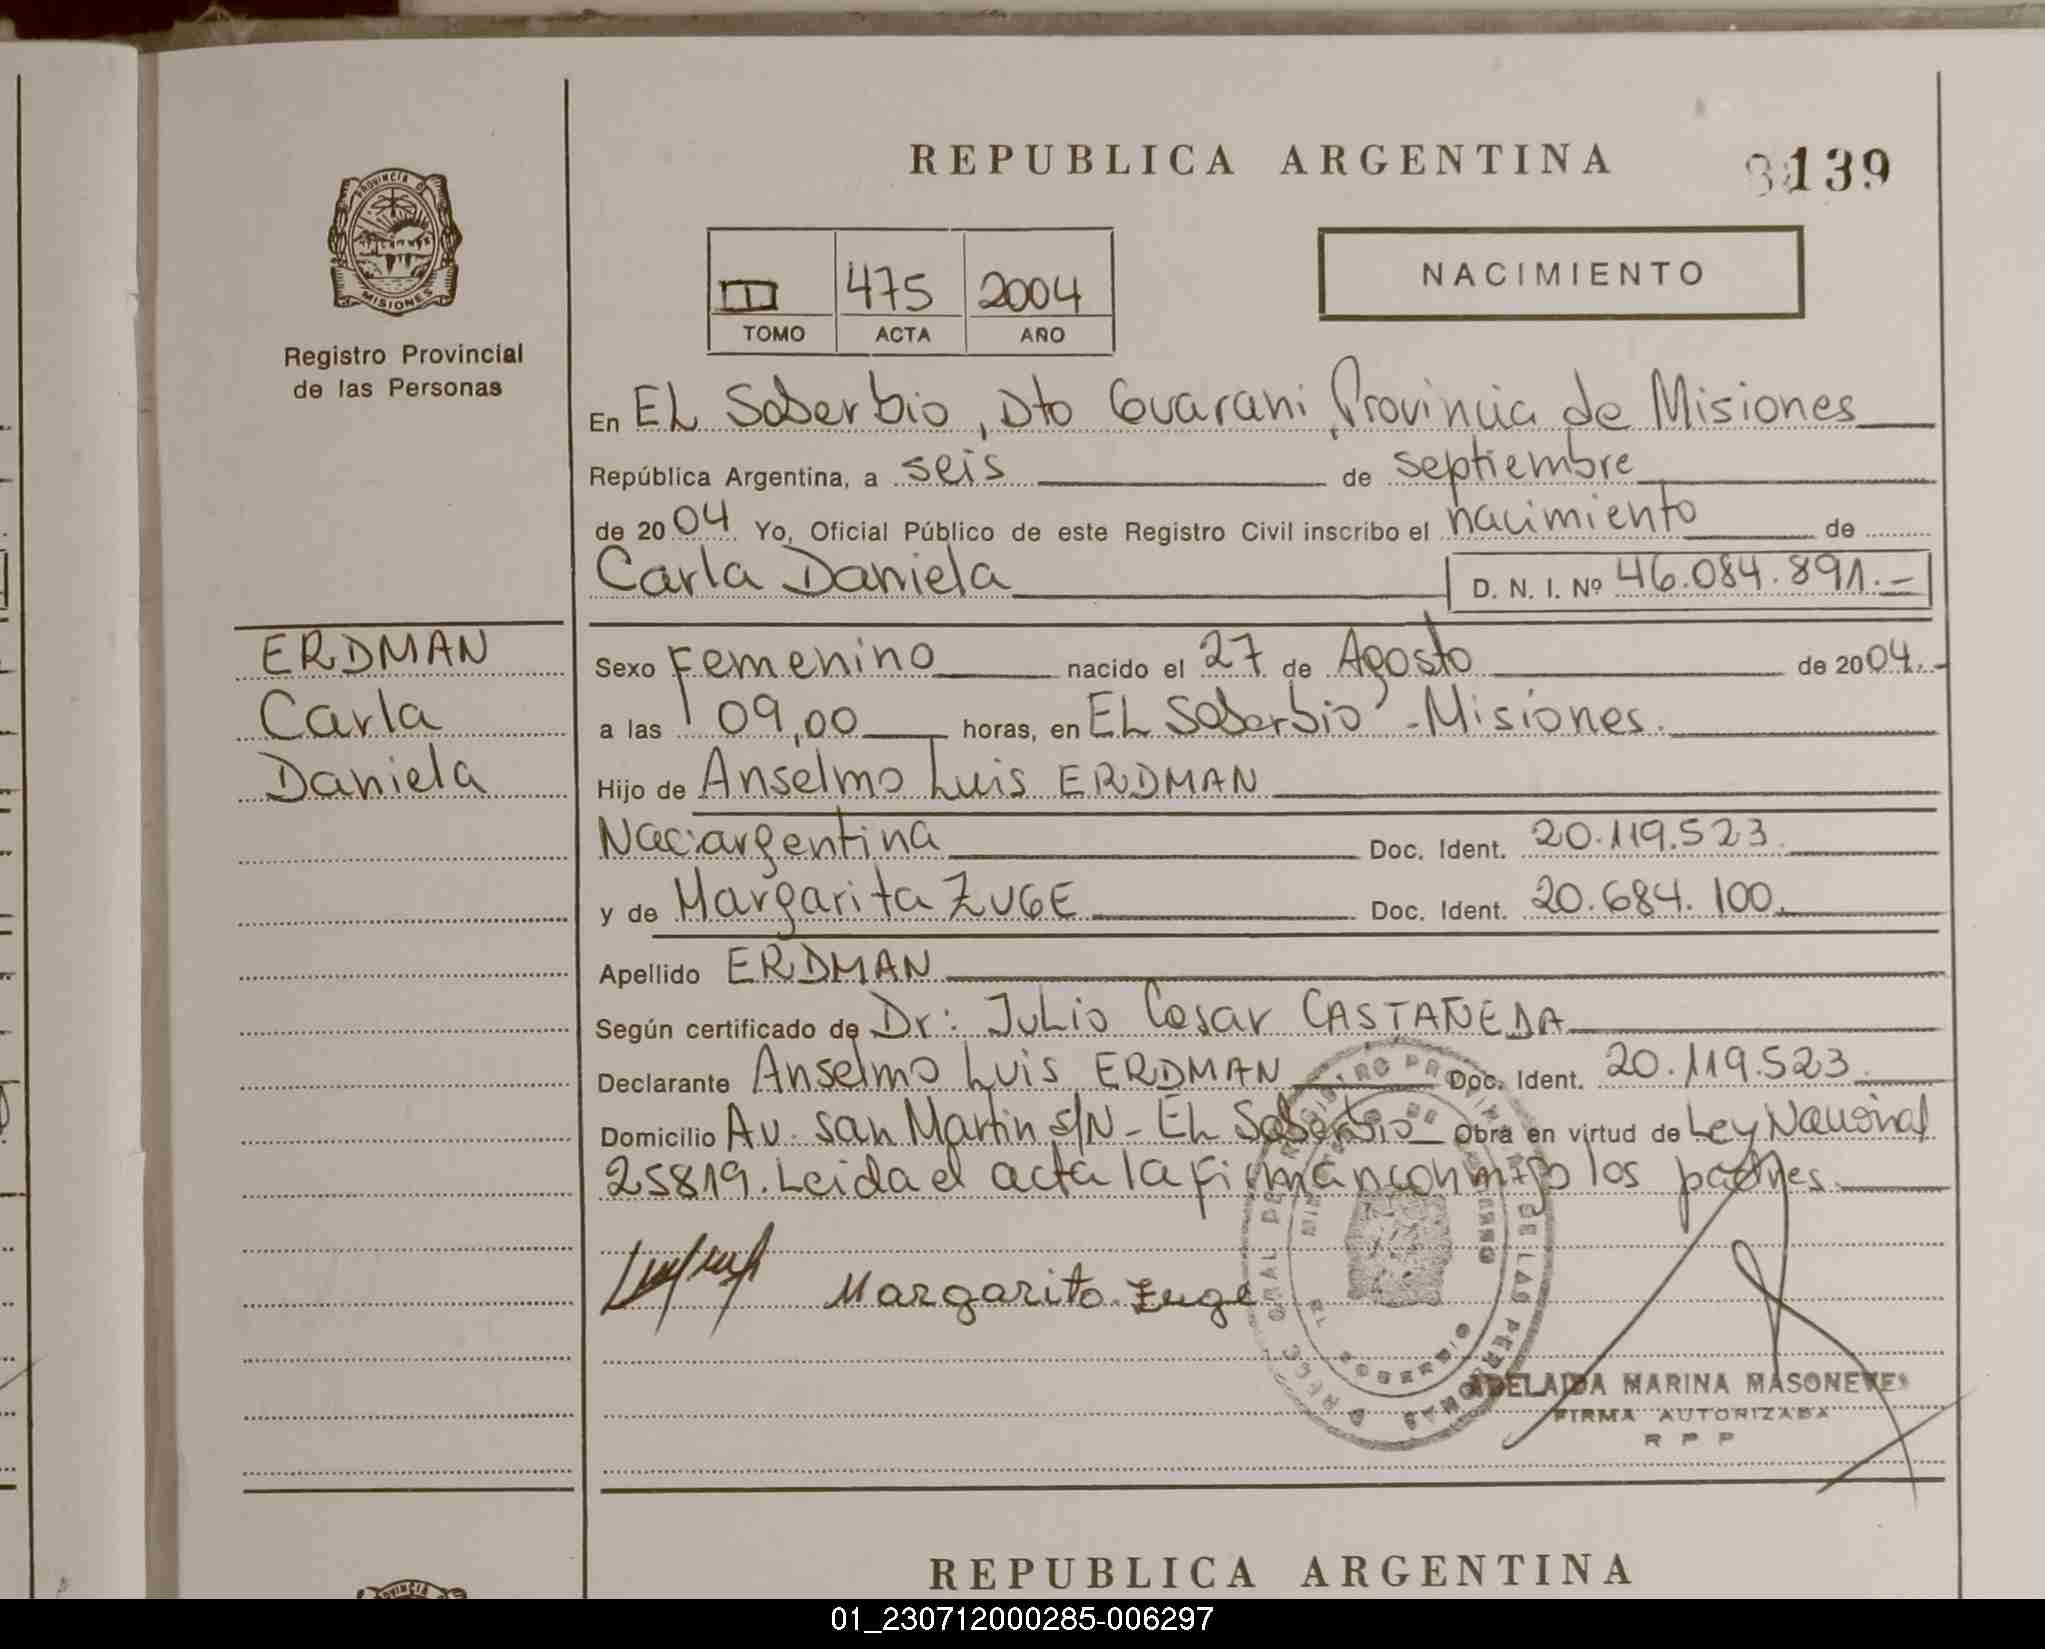 REPUBLICA ARGENTINA
139
PROVINCIA DE
MISIONES
Registro Provincial
de las Personas
NACIMIENTO
II 475 2004
TOMO ACTA AÑO
En EL Soberbio, Dto Guarani, Provincia de Misiones
República Argentina, a seis de septiembre
de 2004 Yo, Oficial Público de este Registro Civil inscribo el nacimiento de
Carla Daniela D. N. I. Nº 46.084.891.-
ERDMAN
Carla
Daniela
Sexo Femenino nacido el 27 de Agosto de 2004.-
a las 09,00 horas, en EL Soberbio - Misiones.
Hijo de Anselmo Luis ERDMAN
Nac: argentina Doc. Ident. 20.119.523
y de Margarita ZUGE Doc. Ident. 20.684.100.
Apellido ERDMAN
Según certificado de Dr: Julio Cesar CASTAÑEDA
Declarante Anselmo Luis ERDMAN Doc. Ident. 20.119.523
Domicilio Av. San Martin s/N - EL Soberbio Obra en virtud de Ley Nacional
25819. Leida el acta la firman conmigo los padres.
Margarita Zuge
ADELAIDA MARINA MASONEVES
FIRMA AUTORIZADA
R P P
REPUBLICA ARGENTINA
01_230712000285-006297